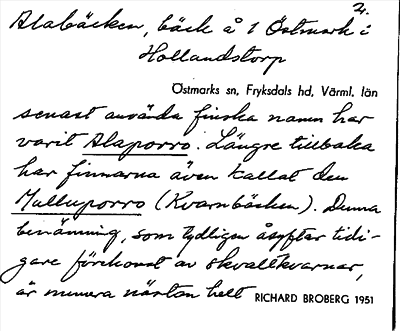 2.
Alabäcken, bäck å 1 Östmark i
Hollandstorp
Östmarks sn, Fryksdals hd, Värml. län
senast använda finska namn har
varit Alaporro. Längre tillbaka
har finnarna även kallat den
Mulluporro (Kvarnbäcken). Denna
benämning, som tydligen åsyftar tidi-
gare förekomst av skvaltkvarnar,
är numera nästan helt RICHARD BROBERG 1951